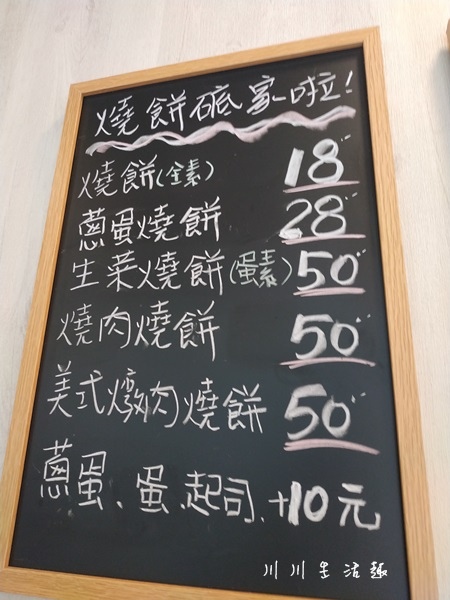 燒餅砥家啦!
燒餅(全素) 18
蔥蛋燒餅 28
生菜燒餅(蛋素) 50
燒肉燒餅 50
美式燉肉燒餅 50
蔥蛋、蛋、起司、+10元
川川生活趣